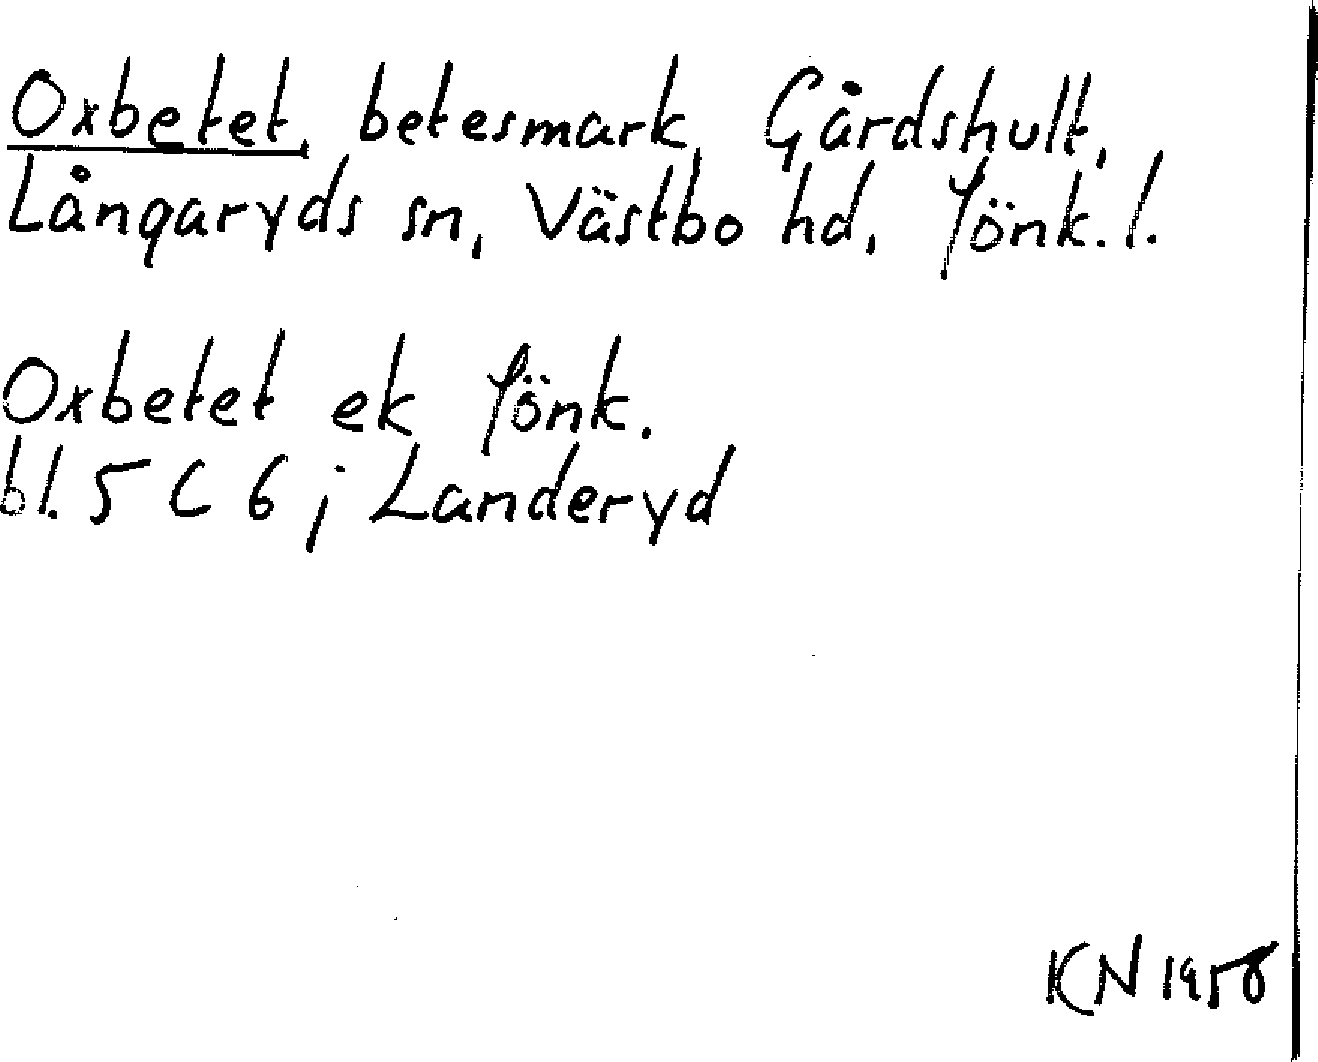 Oxbetet, betesmark, Gårdshult,
Långaryds sn, Västbo hd, Jönk. l.
Oxbetet ek Jönk.
bl. 5 C 6 ; Landeryd
KN 1958